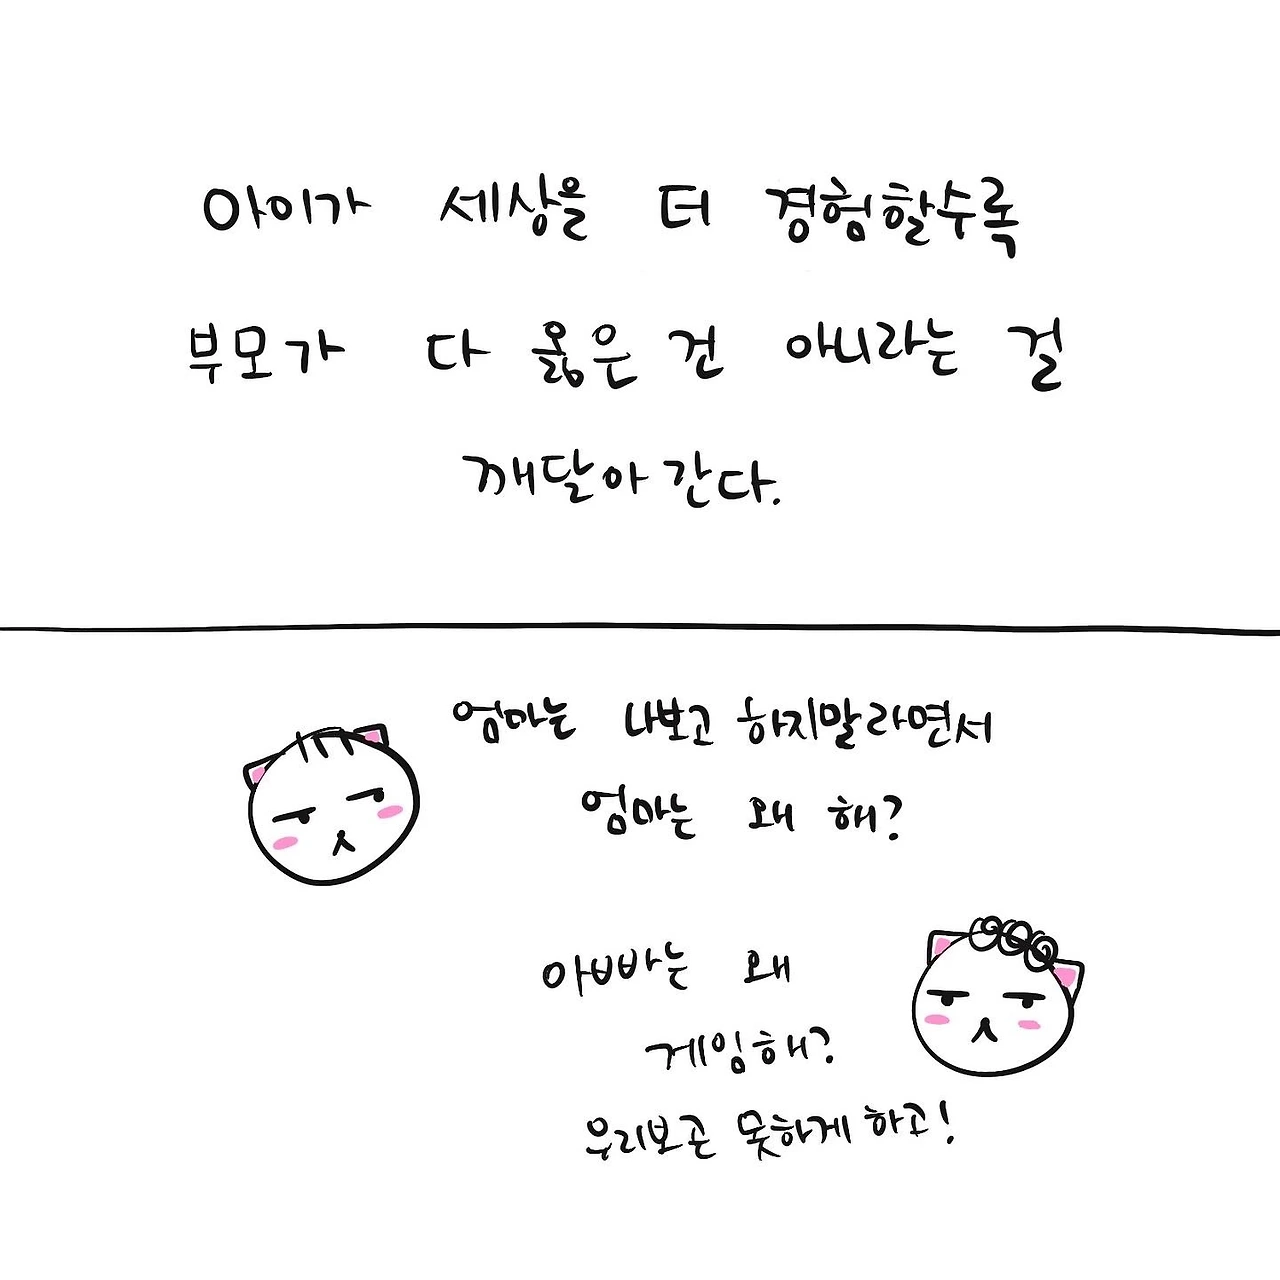 아이가 세상을 더 경험할수록
부모가 다 옳은 건 아니라는 걸
깨달아 간다.
엄마는 나보고 하지말라면서
엄마는 왜 해?
아빠는 왜
게임해?
우리보곤 못하게 하고!